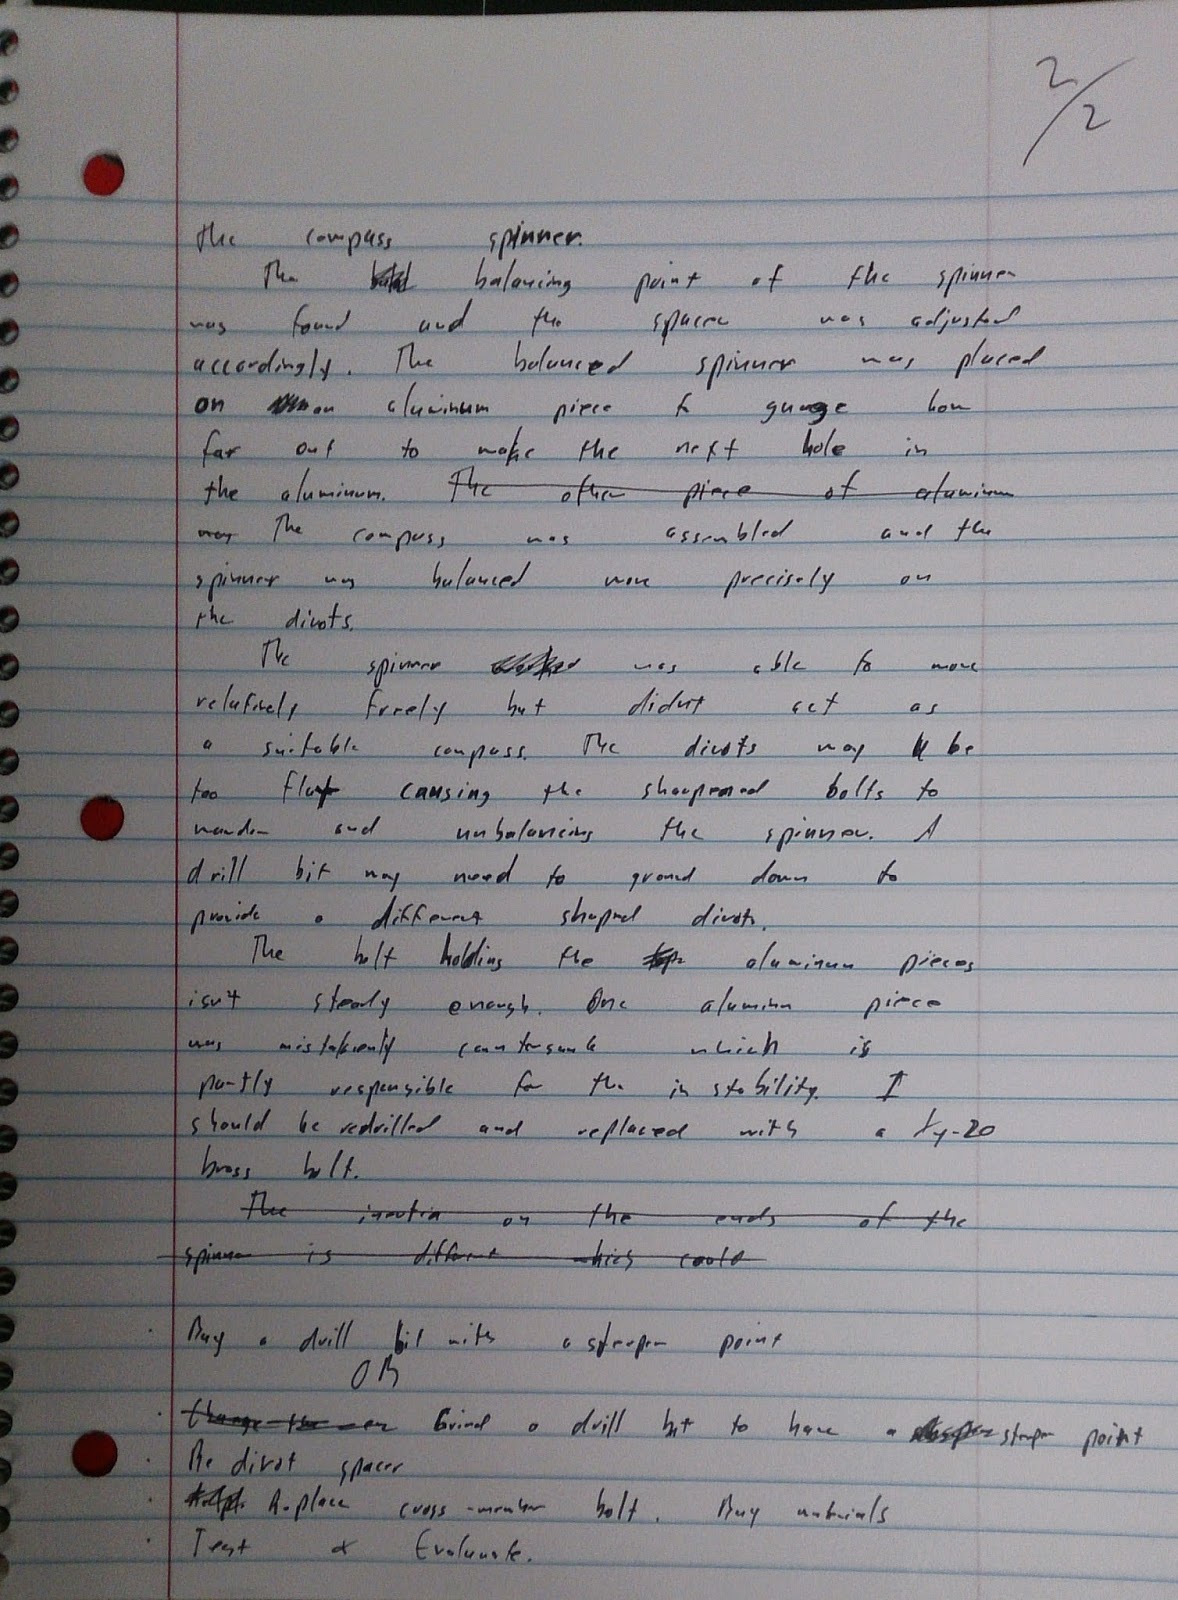 2/2
the compass spinner.
The balancing point of the spinner
was found and the spacer was adjusted
accordingly. The balanced spinner was placed
on an aluminum piece to guage how
far out to make the next hole in
the aluminum. The other piece of aluminum
was The compass was assembled and the
spinner was balanced more precisely on
the divots.
The spinner was able to move
relatively freely but didnt act as
a suitable compass. The divots may be
too flat causing the sharpened bolts to
wander and unbalancing the spinner. A
drill bit may need to ground down to
provide a different shaped divots.
The bolt holding the aluminum pieces
isn't steady enough. One aluminum piece
was mistakenly countersunk which is
partly responsible for the instability. I
should be redrilled and replaced with a 1/4-20
brass bolt.
The inertia on the ends of the
spinner is different which could
· Buy a drill bit with a steeper point
OR
· Change the Grind a drill bit to have a steeper point
· Re divot spacer
· Replace cross-member bolt. Buy materials
· Test & Evaluate.